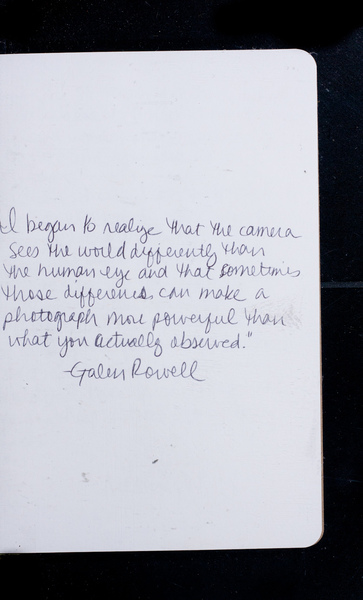 I began to realize that the camera
sees the world differently than
the human eye and that sometimes
those differences can make a
photograph more powerful than
what you actually observed."
-Galen Rowell